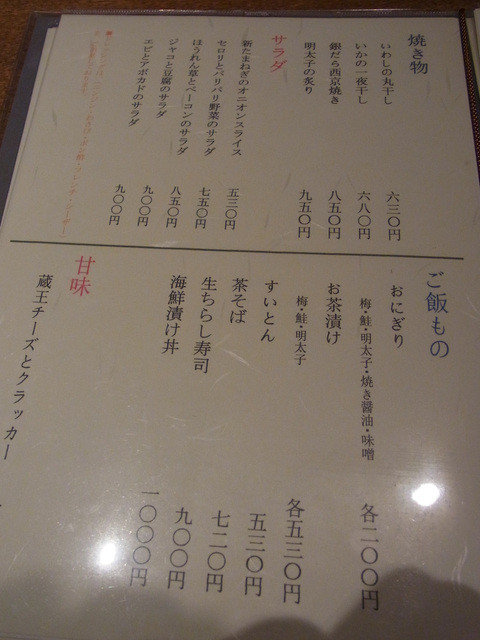 焼き物
いわしの丸干し 六三〇円
いかの一夜干し 六八〇円
銀だら西京焼き 八五〇円
明太子の炙り 九五〇円
サラダ
新たまねぎのオニオンスライス 五三〇円
セロリとバリバリ野菜のサラダ 七五〇円
ほうれん草とベーコンのサラダ 八五〇円
ジャコと豆腐のサラダ 九〇〇円
エビとアボカドのサラダ 九〇〇円
ご飯もの
おにぎり 各二〇〇円
梅・鮭・明太子・焼き醤油・味噌
お茶漬け 各五三〇円
梅・鮭・明太子
すいとん 五三〇円
茶そば 七二〇円
生ちらし寿司 九〇〇円
海鮮漬け丼 一〇〇〇円
甘味
蔵王チーズとクラッカー